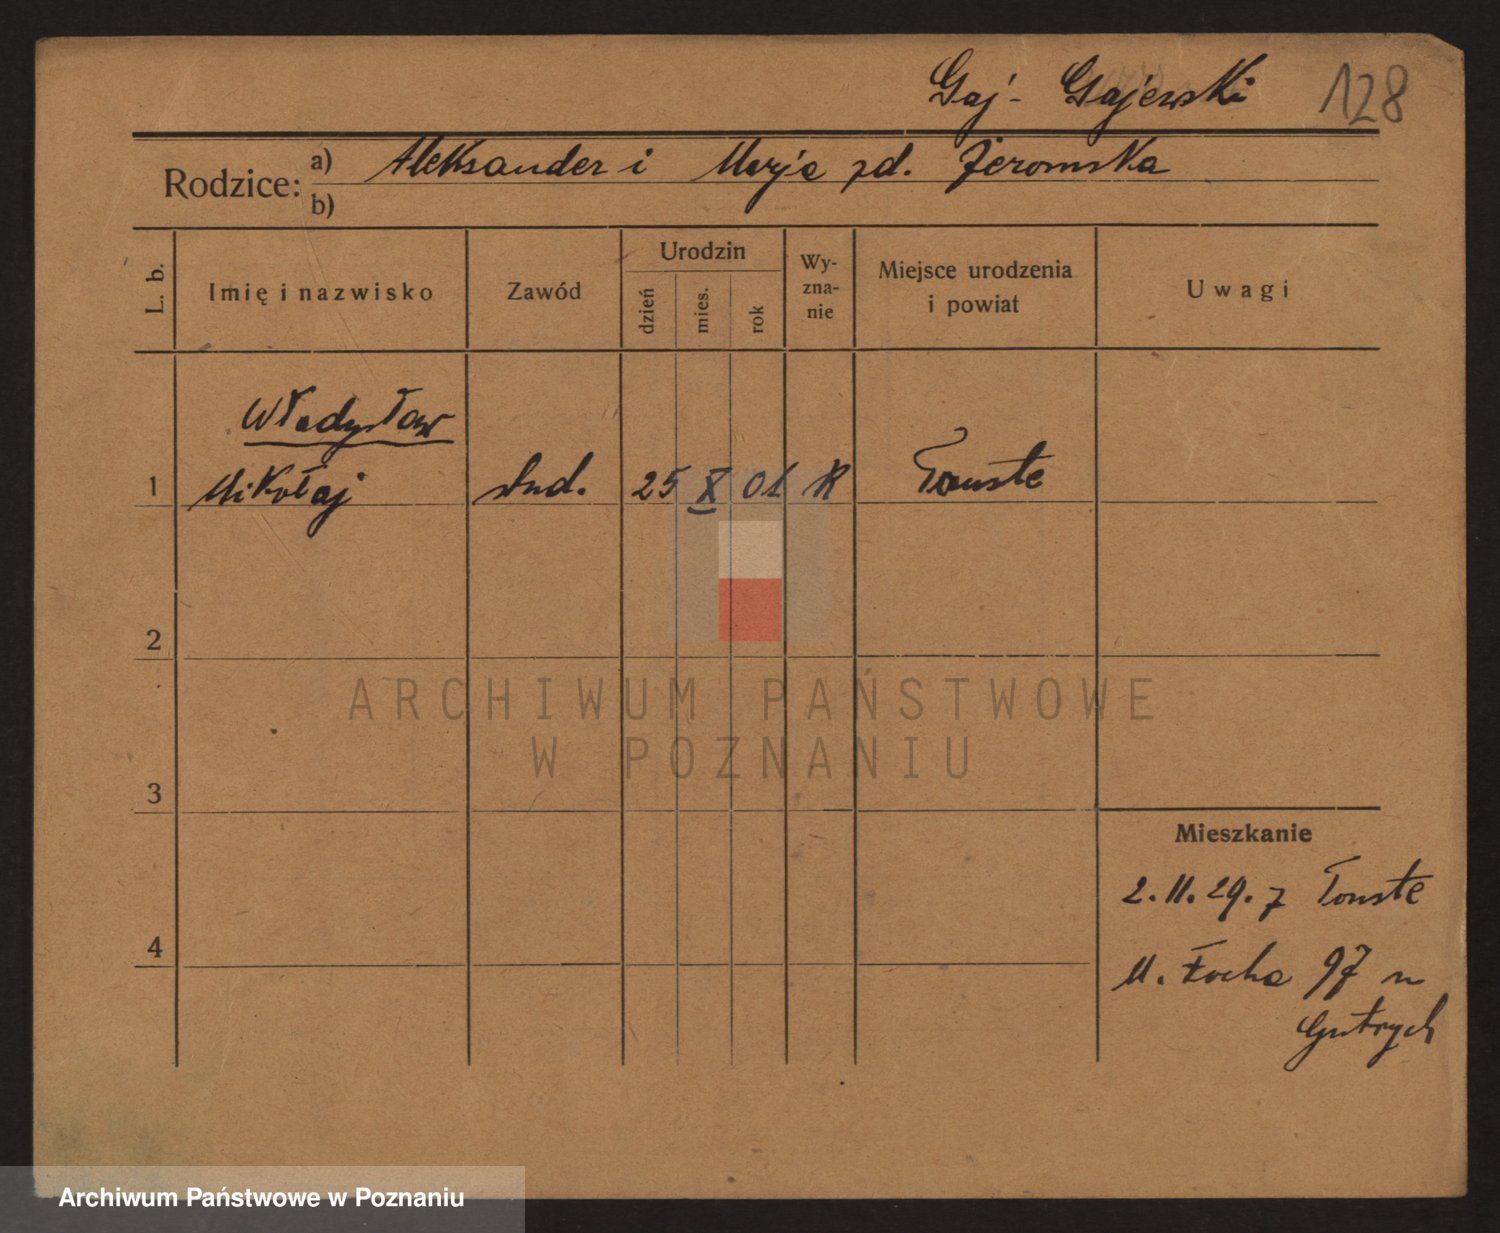 Gaj - Gajewski 128
Rodzice: a) Aleksander i Marja zd. Żeromska
b)
L. b. Imię i nazwisko Zawód Urodzin dzień mies. rok Wyznanie Miejsce urodzenia i powiat Uwagi
Władysław
1 Mikołaj stud. 25 X 01 R Touste
2
ARCHIWUM PAŃSTWOWE
W POZNANIU
3
Mieszkanie
2.11.29. z Touste
4
M. Focha 97 u
Gutrych
Archiwum Państwowe w Poznaniu